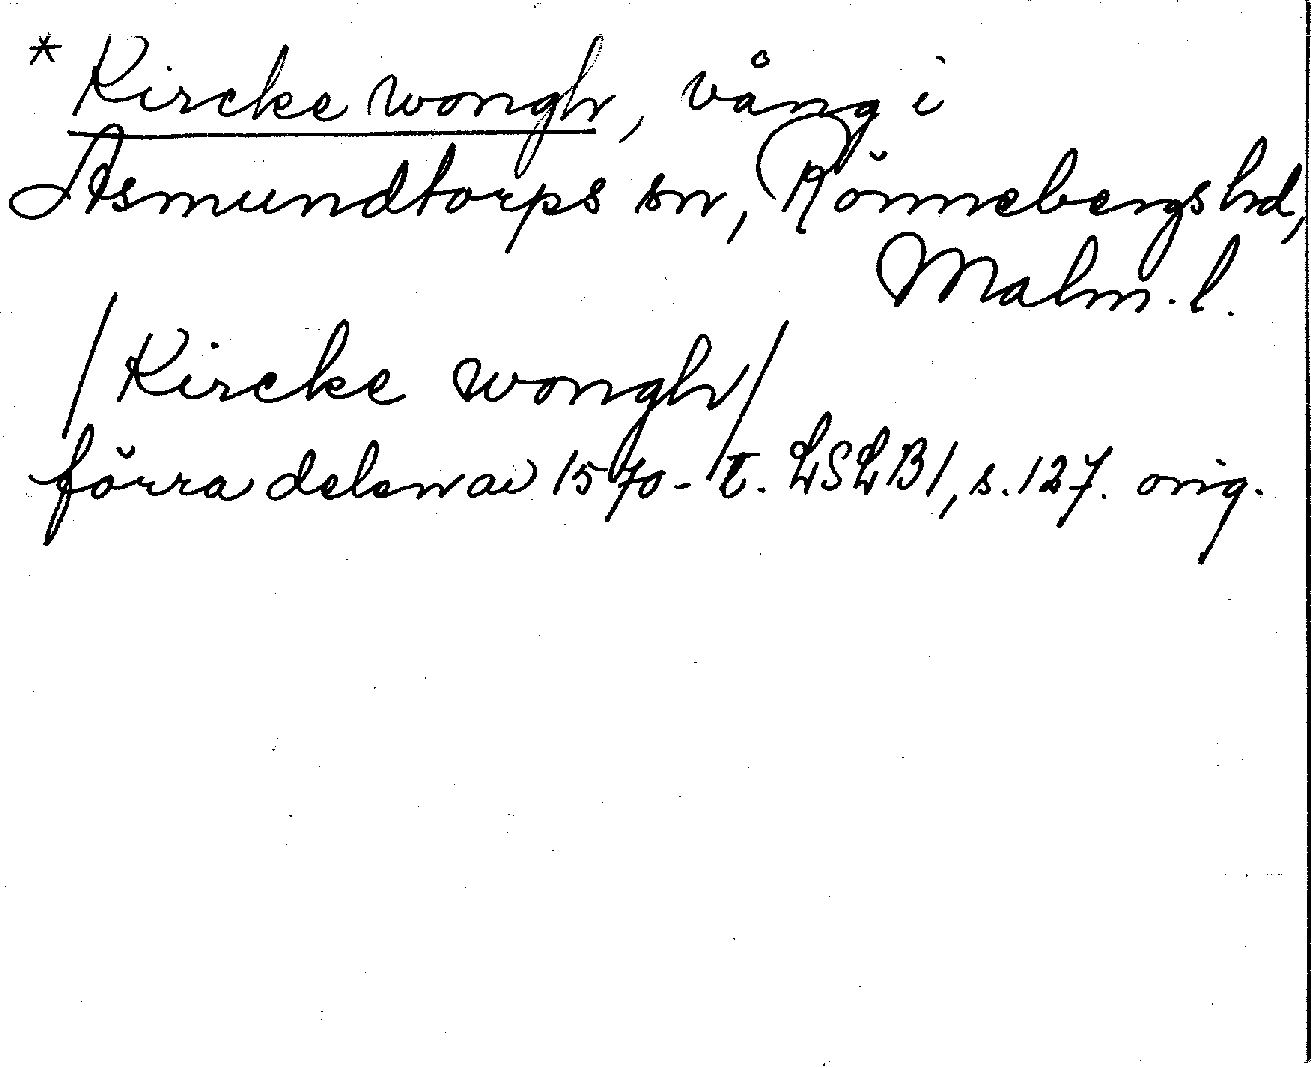 * Kircke wongh, vång i
Asmundtorps sn, Rönnebergs hd,
Malm. l.
/Kircke wongh/
förra delen av 1570-t. LSLB1, s. 127. orig.